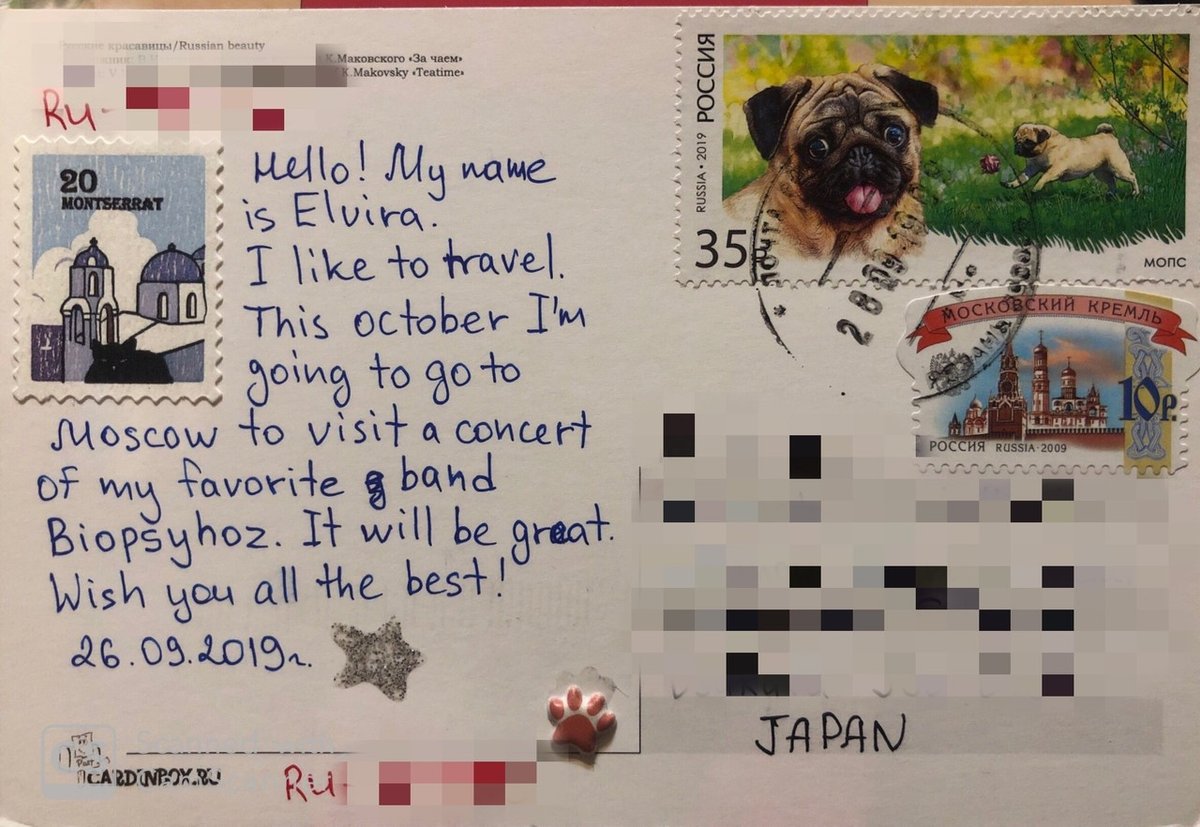 Русские красавицы/Russian beauty
К.Маковского «За чаем»
K.Makovsky «Teatime»
Ru-
20
MONTSERRAT
Hello! My name
is Elvira.
I like to travel.
This october I'm
going to go to
Moscow to visit a concert
of my favorite band
Biopsyhoz. It will be great.
Wish you all the best!
26.09.2019г.
CARDINBOX.RU
Ru-
РОССИЯ
RUSSIA • 2019
35
МОПС
ПОЧТА
28 09
МОСКОВСКИЙ КРЕМЛЬ
10р.
РОССИЯ RUSSIA • 2009
JAPAN